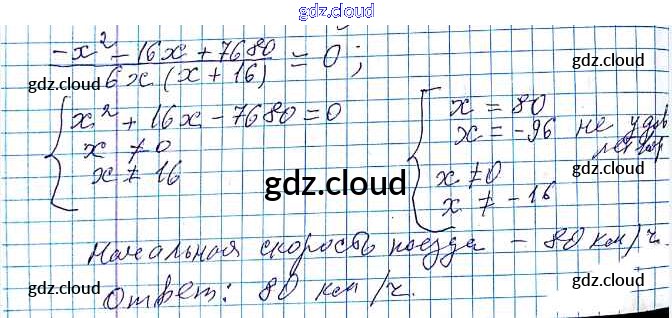 gdz.cloud
(-x² - 16x + 7680) / (6x(x + 16)) = 0;
gdz.cloud gdz.cloud
{ x² + 16x - 7680 = 0 [ x = 80
x ≠ 0 x = -96 не удов
летвор
x ≠ 16 x ≠ 0
gdz.cloud x ≠ -16
gdz.cloud gdz.cloud
Начальная скорость поезда – 80 км/ч.
gdz.cloud Ответ: 80 км/ч. gdz.cloud